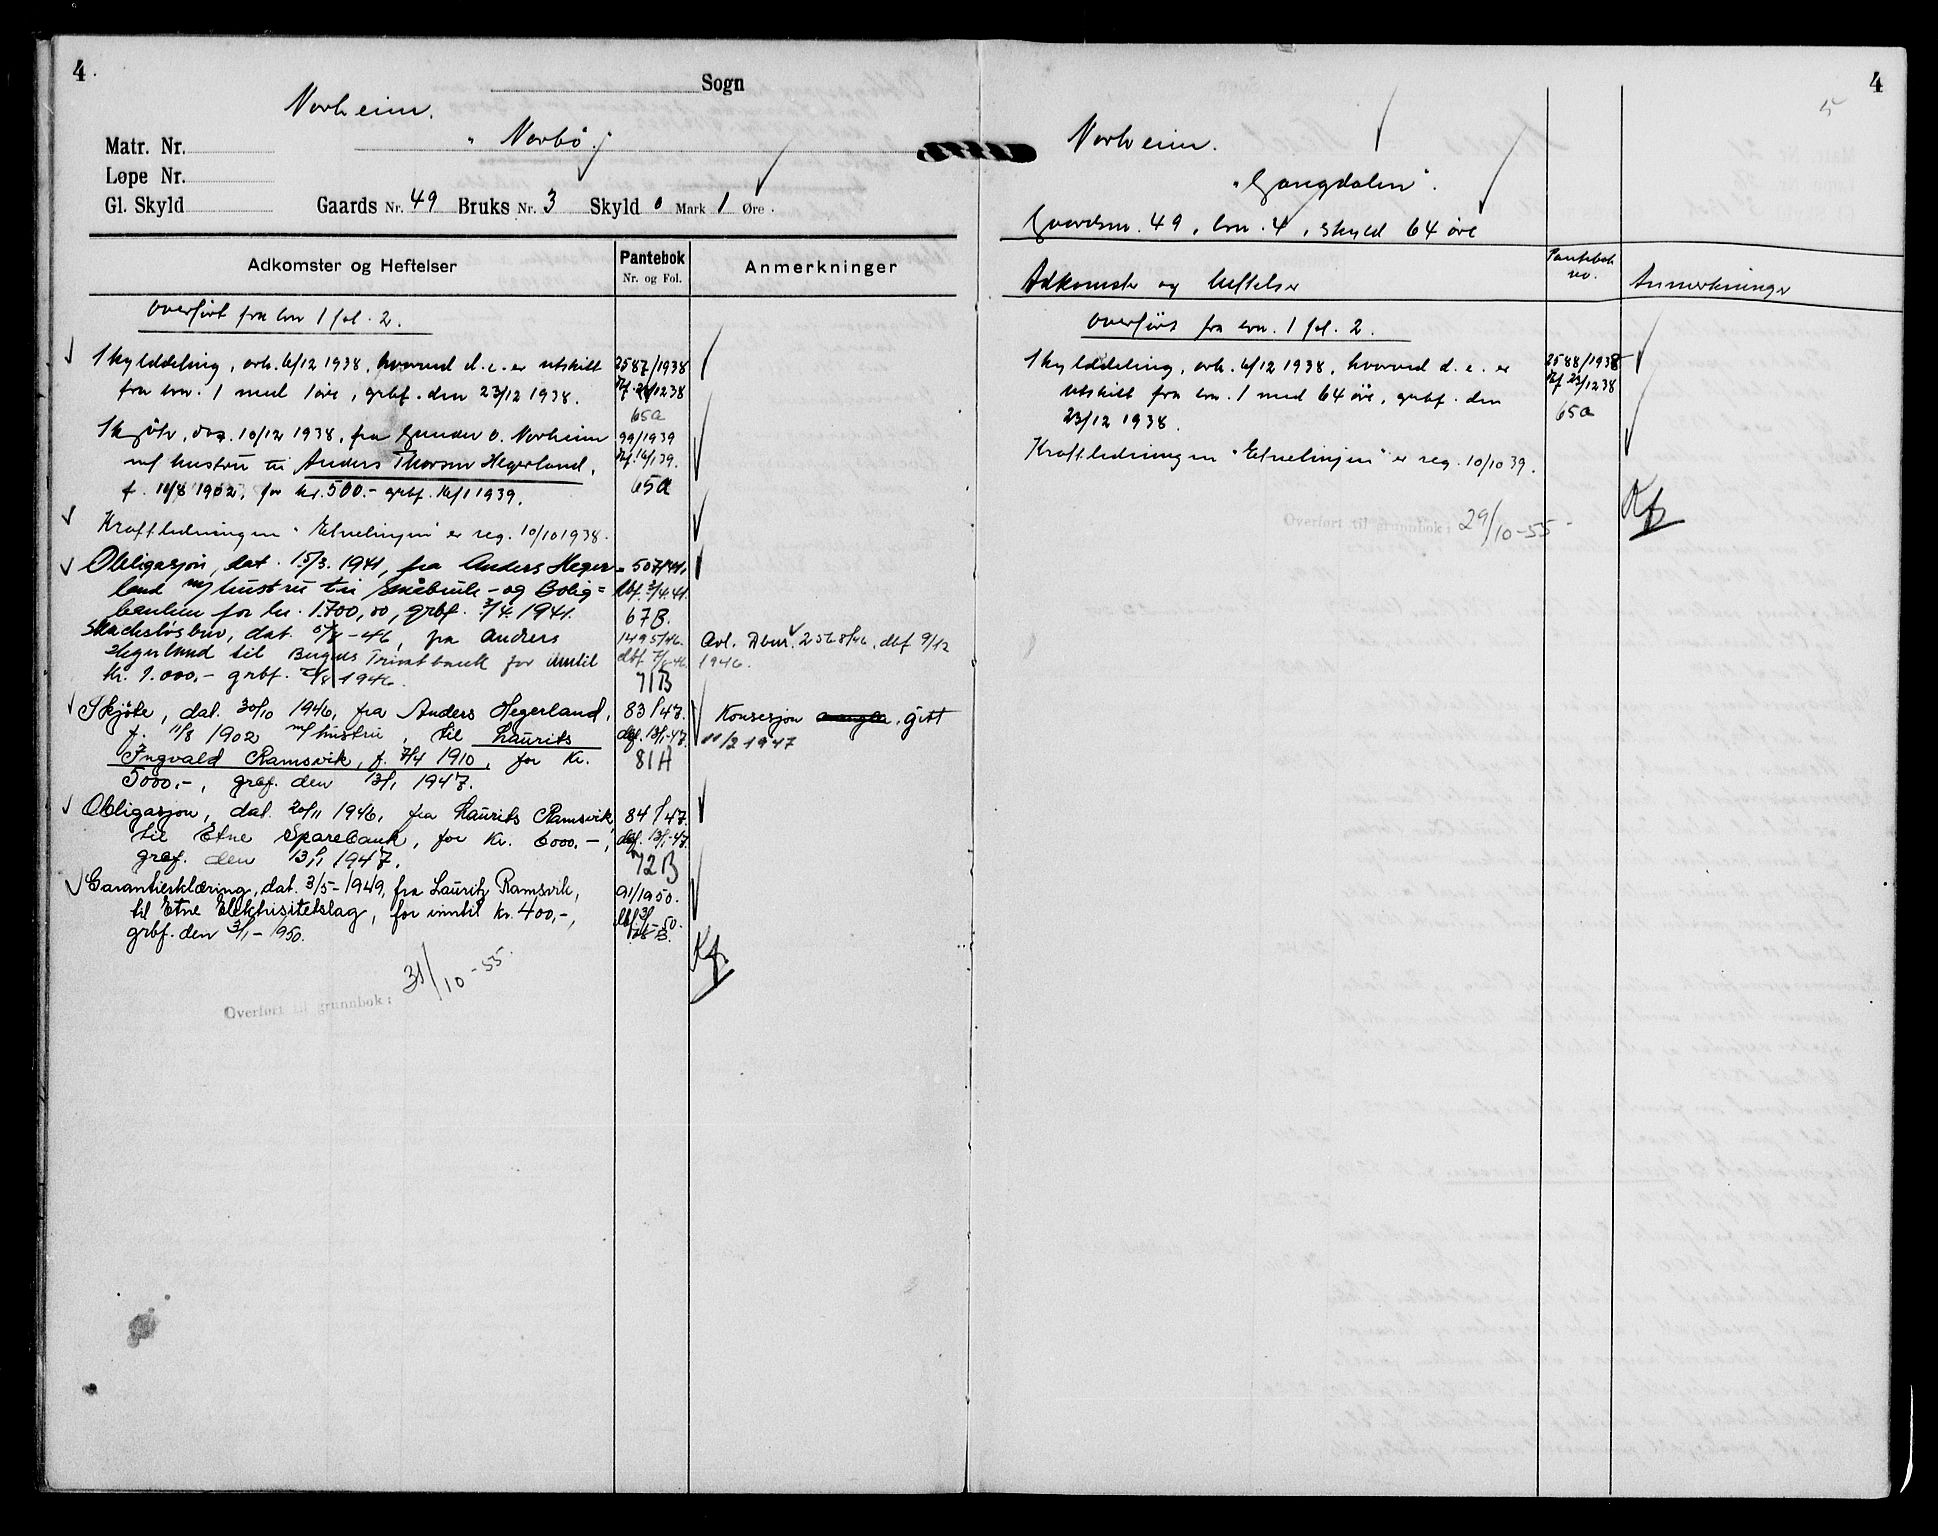 4.
Sogn
Norheim.
"Norbø"
Matr. Nr.
Løpe Nr.
Gl. Skyld
Gaards Nr. 49 Bruks Nr. 3 Skyld 0 Mark 1 Øre.
Adkomster og Heftelser
Pantebok
Nr. og Fol.
Anmerkninger
Overført fra bnr 1 fol. 2.
Skylddeling, avh. 6/12 1938, hvorved d. e. er utskilt 2587/1938
fra bnr. 1 med 1 øre, grbf. den 23/12 1938.
65a
Skjøte, dat. 10/12 1938, fra Gunder O. Norheim 99/1939
m/ hustru til Anders Thorsen Hegerland,
f. 11/8 1902, for kr. 500.- grbf. 16/1 1939. 65a
Kraftledningen "Etnelinjen" er reg. 10/10 1938.
Obligasjon, dat. 15/3. 1941, fra Anders Heger- 507/41.
land m/ hustru til Småbruk- og Bolig= dbf. 3/4.41.
banken for kr. 1700,00, grbf. 3/4. 1941. 67B.
Skadesløsbrev, dat. 5/8-46, fra Anders 1495/46. Avl. Dbnr. 2568/46, dbf 9/12
Hegerland til Bergens Privatbank for inntil dbf. 7/8-46. 1946.
kr. 9.000,- grbf. 7/8 1946. 71B
Skjøte, dat. 30/10 1946, fra Anders Hegerland, 83/47. Konsesjon mangler, gitt
f. 11/8 1902 m/ hustru, til Laurits dgf. 13/1-47. 11/2 1947
Ingvald Ramsvik, f. 7/4 1910, for kr. 81A
5000,-, grbf. den 13/1 1947.
Obligasjon, dat. 20/11 1946, fra Laurits Ramsvik 84/47.
til Etne Sparebank, for kr. 6000.-, dgf. 13/1-47.
grbf. den 13/1 1947. 72B
Garantierklæring, dat. 3/5-1949, fra Lauritz Ramsvik, 91/1950.
til Etne Elektrisitetslag, for inntil kr. 400,-, dbf. 3/1-50.
grbf. den 3/1-1950.
Overført til grunnbok: 31/10-55.
4
5
Norheim.
"Gangdalen".
Gaardsnr. 49, bnr. 4, skyld 64 øre
Adkomster og heftelser
Pantebok
nr.
Anmerkninger
Overført fra bnr. 1 fol. 2.
Skylddeling, avh. 6/12 1938, hvorved d. e. er 2588/1938
utskilt fra bnr. 1 med 64 øre, grbf. den
23/12 1938. 65a
Kraftledningen "Etnelinjen" er reg. 10/10 39.
Overført til grunnbok: 29/10-55